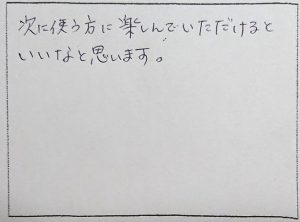 次に使う方に楽しんでいただけると
いいなと思います。